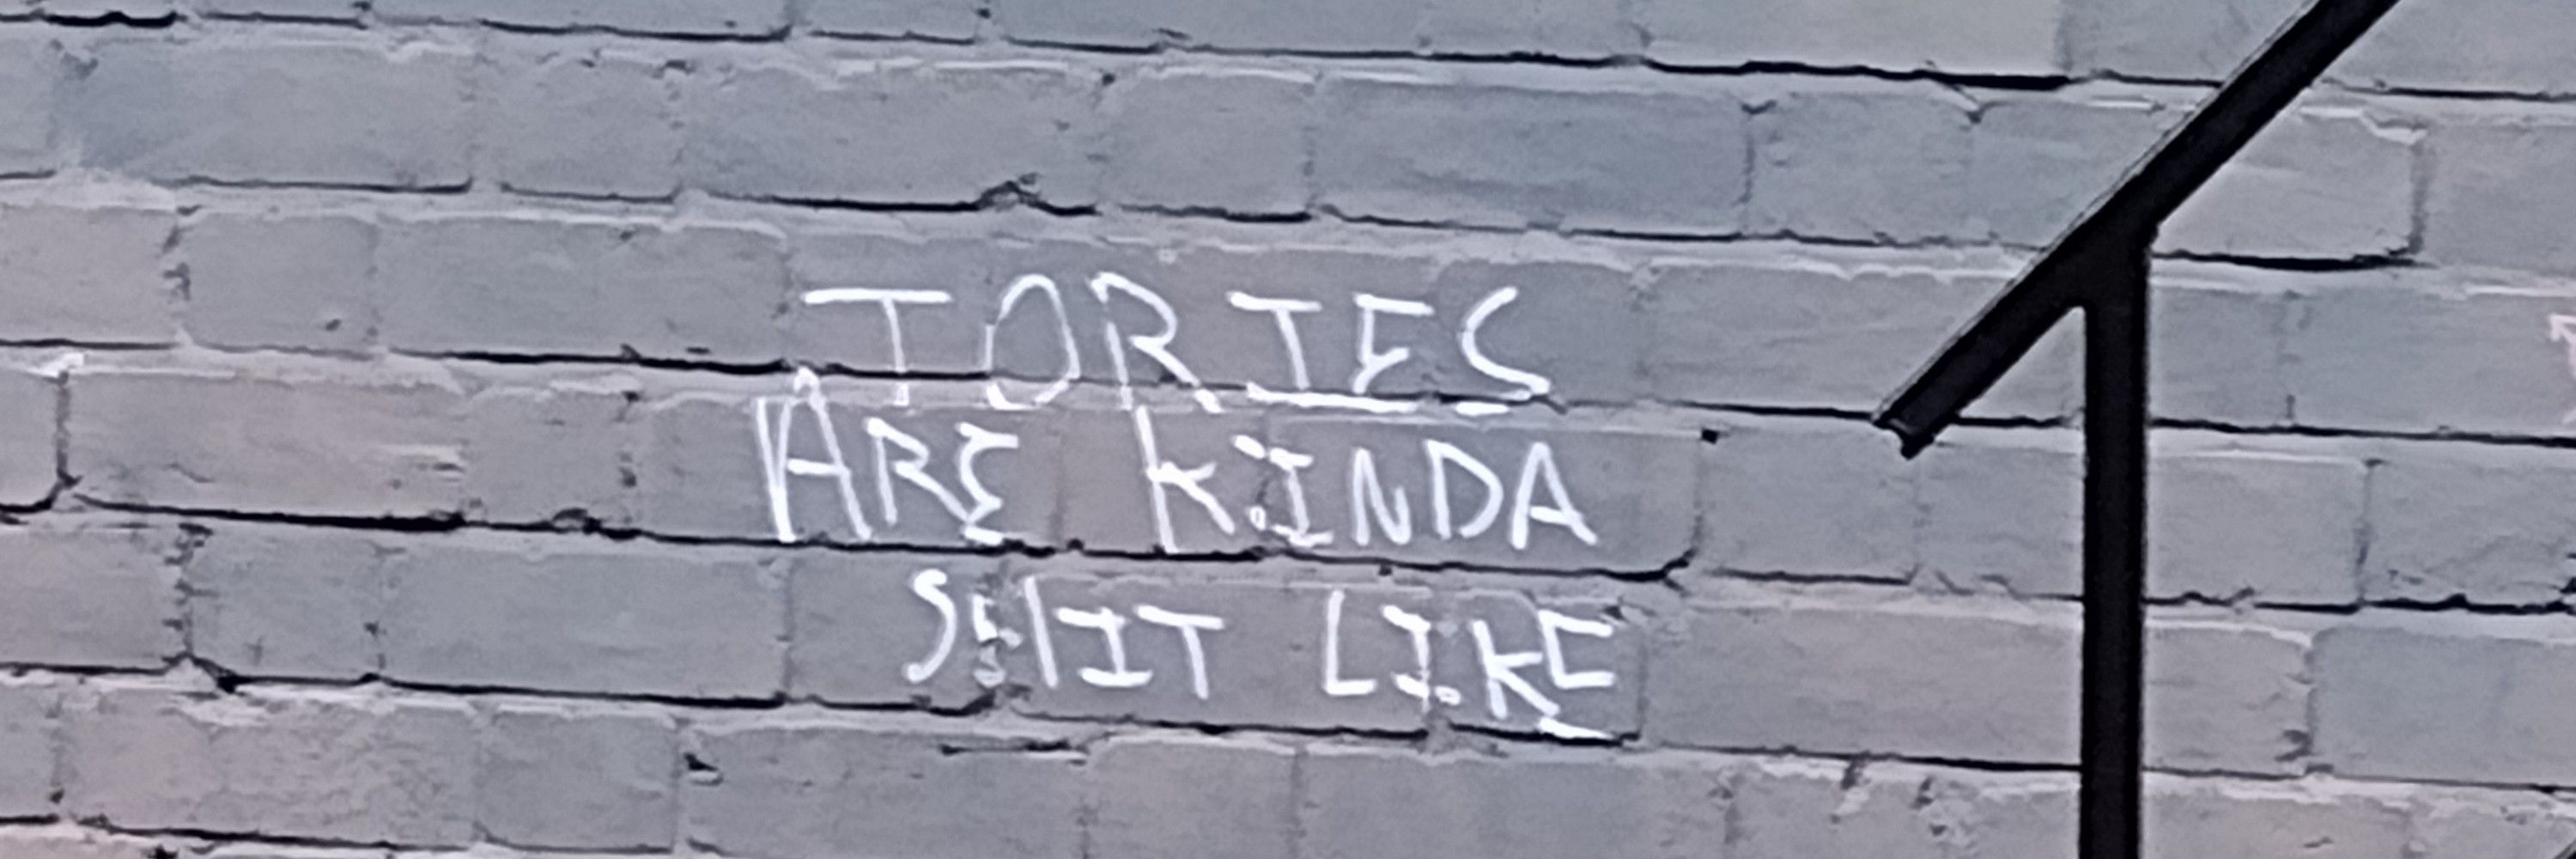 TORIES
ARE KINDA
SHIT LIKE